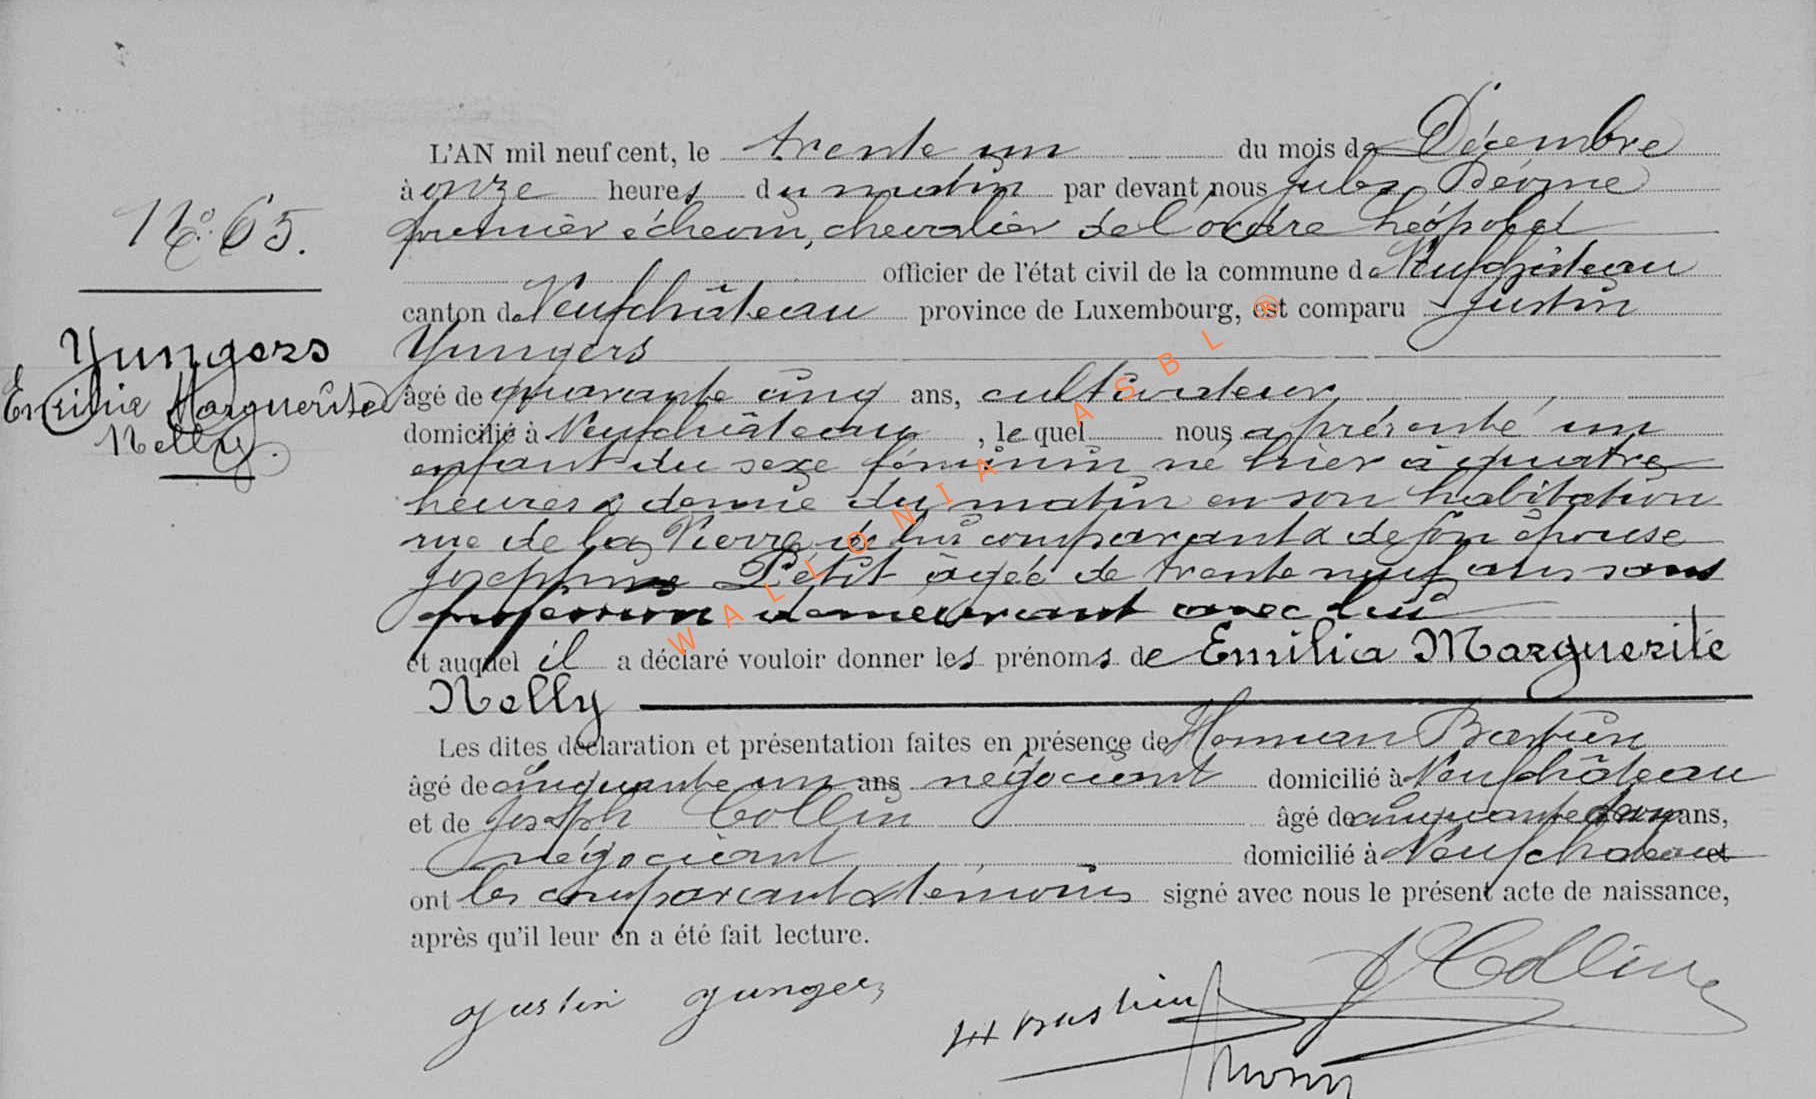 No 65.
Yungers
Emilia Marguerite
Nelly.
L'AN mil neuf cent, le trente un du mois de Décembre
à onze heures du matin par devant nous Jules
premier échevin, chevalier de l'ordre Léopold
officier de l'état civil de la commune de Neufchâteau
canton de Neufchâteau province de Luxembourg, est comparu Justin
Yungers
âgé de quarante cinq ans, cultivateur
domicilié à Neufchâteau, le quel nous a présenté un
enfant du sexe féminin né hier à quatre
heures & demie du matin en son habitation
rue de la Pierre, de lui comparant & de son épouse
Josephine Petit âgée de trente neuf ans sans
profession demeurant avec lui
et auquel il a déclaré vouloir donner les prénoms de Emilia Marguerite
Nelly
Les dites déclaration et présentation faites en présence de
âgé de cinquante un ans négociant domicilié à Neufchâteau
et de Joseph Collin âgé de cinquante ans,
négociant domicilié à Neufchateau et
ont les comparant & témoins signé avec nous le présent acte de naissance,
après qu'il leur en a été fait lecture.
Justin Yungers
J Collin
WALLONIA ASBL ®